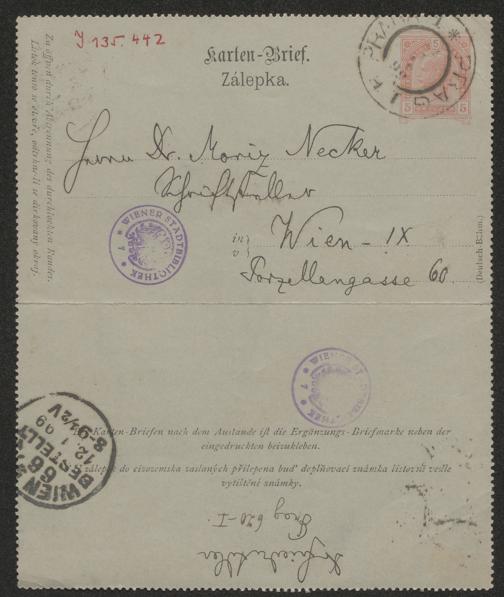 J 135.442
Karten-Brief.
Zálepka.
PRAG
5
5 5
Herrn Dr. Moriz Necker
Schriftsteller
in
v
Wien - IX
Porzellangasse 60.
(Deutsch-Böhm.)
Zu öffnen durch Abtrennung des durchlochten Randes.
WIENER STADTBIBLIOTHEK
WIENER STADTBIBLIOTHEK
WIEN
BESTELLT
12.1.99
8-9½V
Karten-Briefen nach dem Auslande ist die Ergänzungs-Briefmarke neben der
eingedruckten beizukleben.
do cizozemska zaslaných přilepena buď doplňovací známka listovní vedle
vytištěné známky.
Prag 620-I.